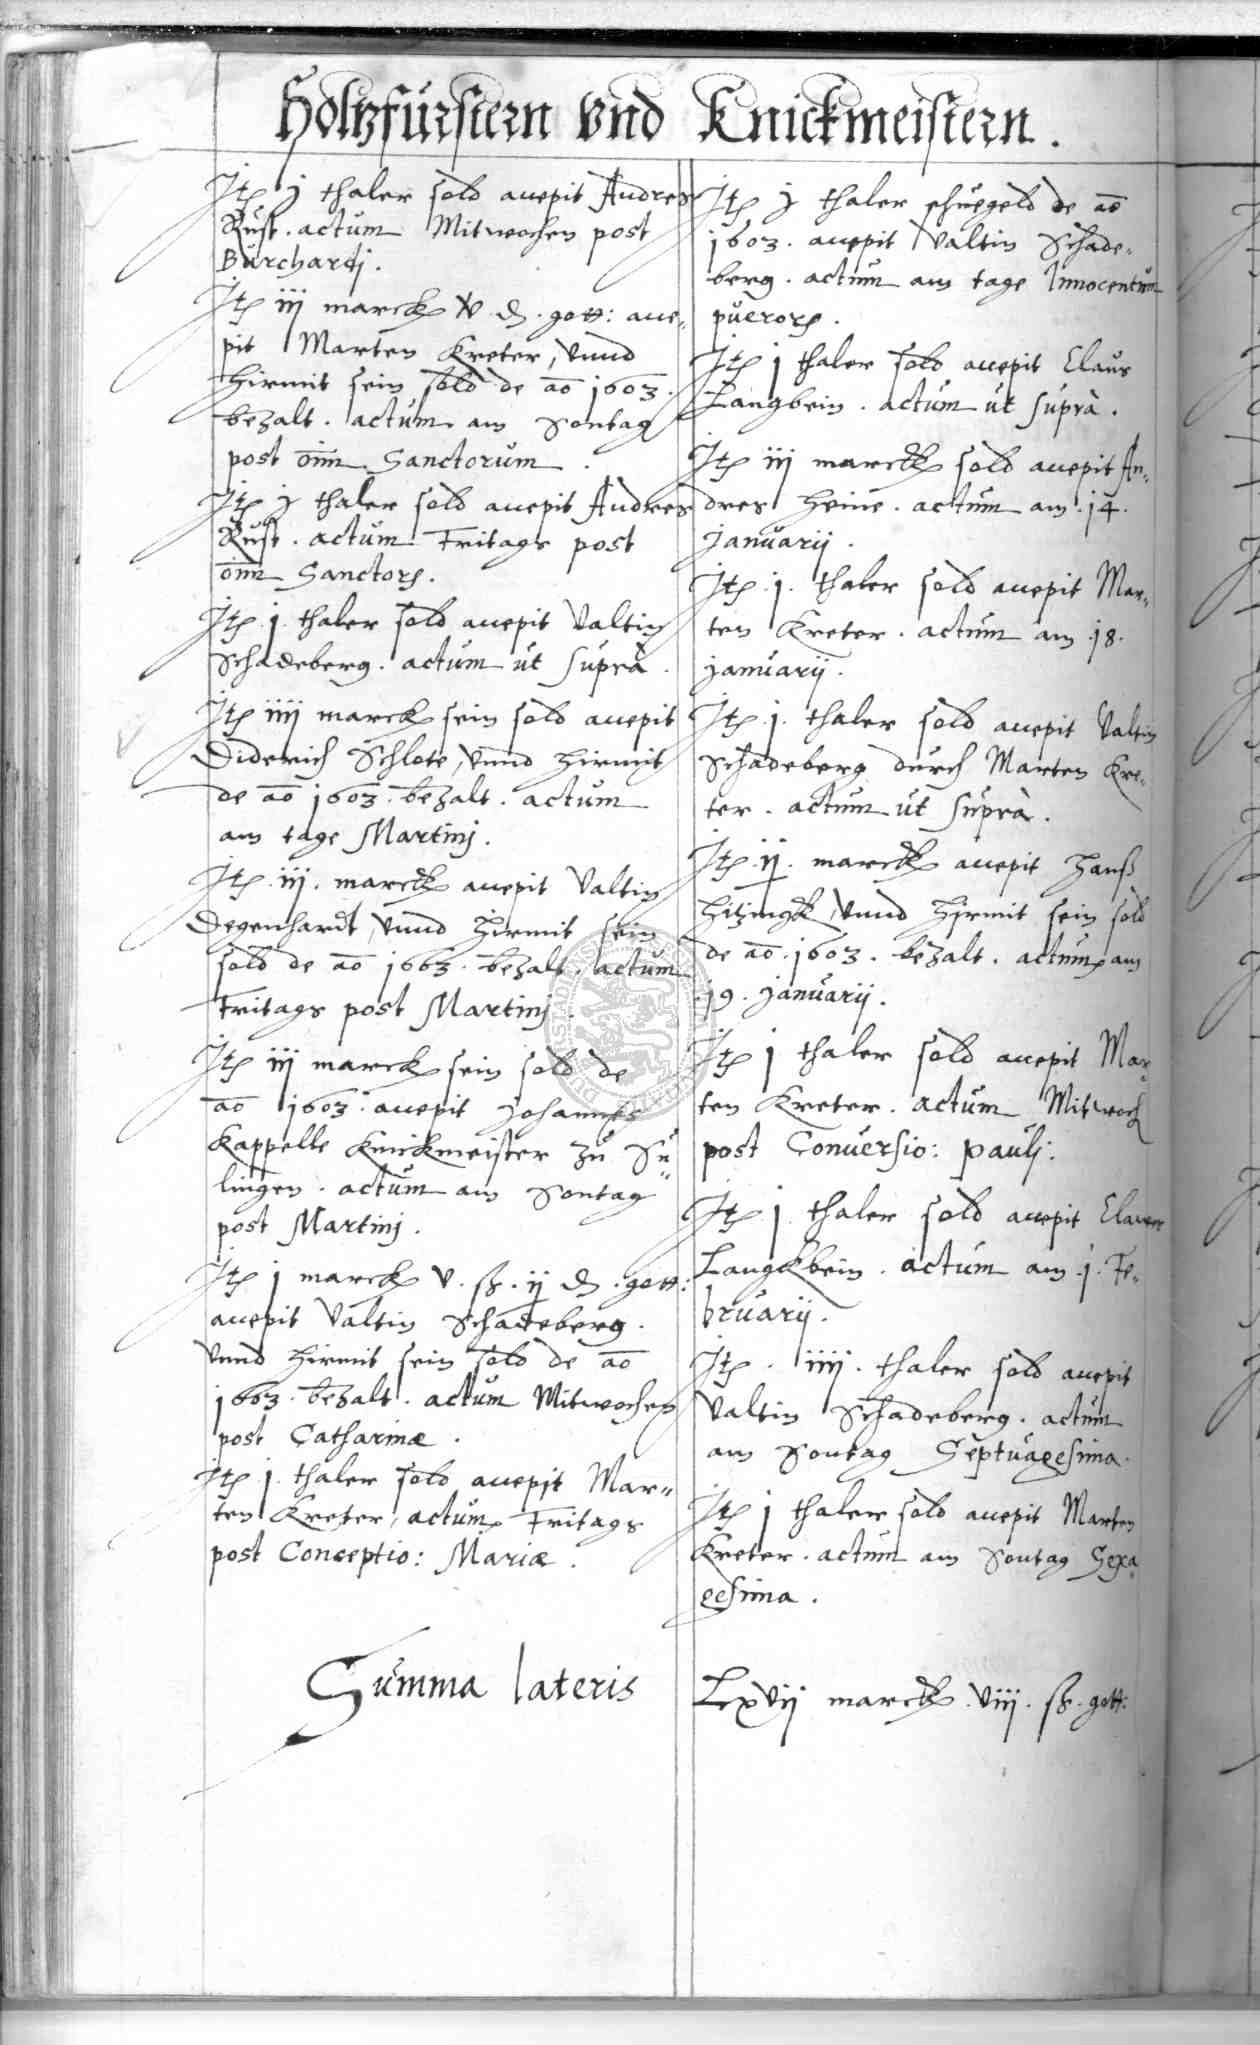 Holtzfürstern vnd Knickmeistern.
Itē j thaler sold accepit Andres
Rust. actum Mitwochen post
Burchardj.
Itē iij marck v ₰. gott: acce„
pit Marten Kreter, vnnd
hirmit sein sold de ao 1603.
bezalt. actum am Sontag
post om̄m Sanctorum.
Itē j thaler sold accepit Andres
Rust. actum Fritags post
om̄m Sanctorꝝ.
Itē .j. thaler sold accepit Valtin
Schadeberg. actum ut suprà.
Itē iiij marck sein sold accepit
Diderich Schlote, vnnd hirmit
de ao 1603. bezalt. actum
am tage Martinj.
Itē .iij. marck accepit Valtin
Degenhardt, vnnd hirmit sein
sold de ao 1603. bezalt. actum
Fritags post Martinj.
Itē iij marck sein sold de
ao 1603. accepit Johannes
Kappelle Knickmeister zu Sü„
lingen. actum am Sontag
post Martinj.
Itē j marck v. ß. ij ₰. gott:
accepit Valtin Schadeberg.
vnnd hirmit sein sold de ao
1603. bezalt. actum Mitwochen
post Catharinæ.
Itē .j. thaler sold accepit Mar„
ten Kreter, actum Fritags
post Conceptio: Mariæ.
Summa lateris
Itē j thaler schuegeld de ao
1603. accepit Valtin Schade„
berg. actum am tage Innocentum
puerorꝝ.
Itē j thaler sold accepit Claus
Langbein. actum ut suprà.
Itē iij marck sold accepit An„
dres Heine. actum am .14.
Januarij.
Itē .j. thaler sold accepit Mar„
ten Kreter. actum am .18.
januarij.
Itē .j. thaler sold accepit Valtin
Schadeberg durch Marten Kre„
ter. actum ut suprà.
Itē .ij. marck accepit Hanß
Hitzingk, vnnd hirmit sein sold
de ao .1603. bezalt. actum am
.19. januarij.
Itē j thaler sold accepit Mar„
ten Kreter. actum Mitwoch
post Conuersio: paulj:
Itē j thaler sold accepit Clawes
Langkbein. actum am .j. Fe„
bruarij.
Itē . iiij. thaler sold accepit
Valtin Schadeberg. actum
am Sontag Septuagesima.
Itē j thaler sold accepit Marten
Kreter. actum am Sontag Sexa„
gesima.
Lxvij marck .viij. ß. gott: